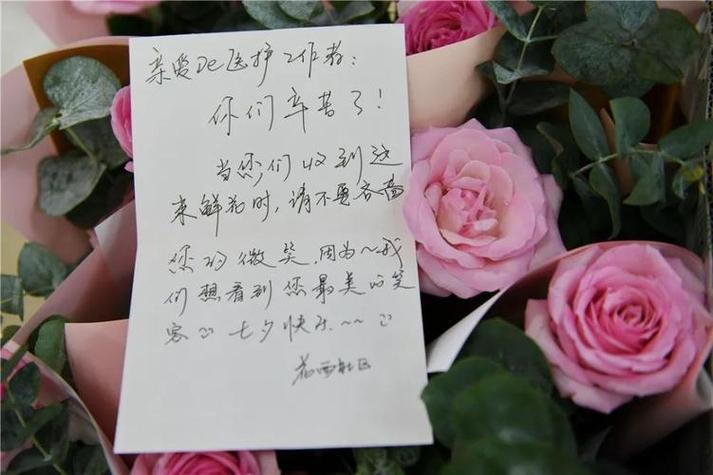 亲爱De医护工作者：
你们辛苦了！
当您们收到这
来鲜花时，请不要吝啬
您的微笑，因为~我
们想看到您最美的笑
容☺七夕快乐~~☺
花西社区